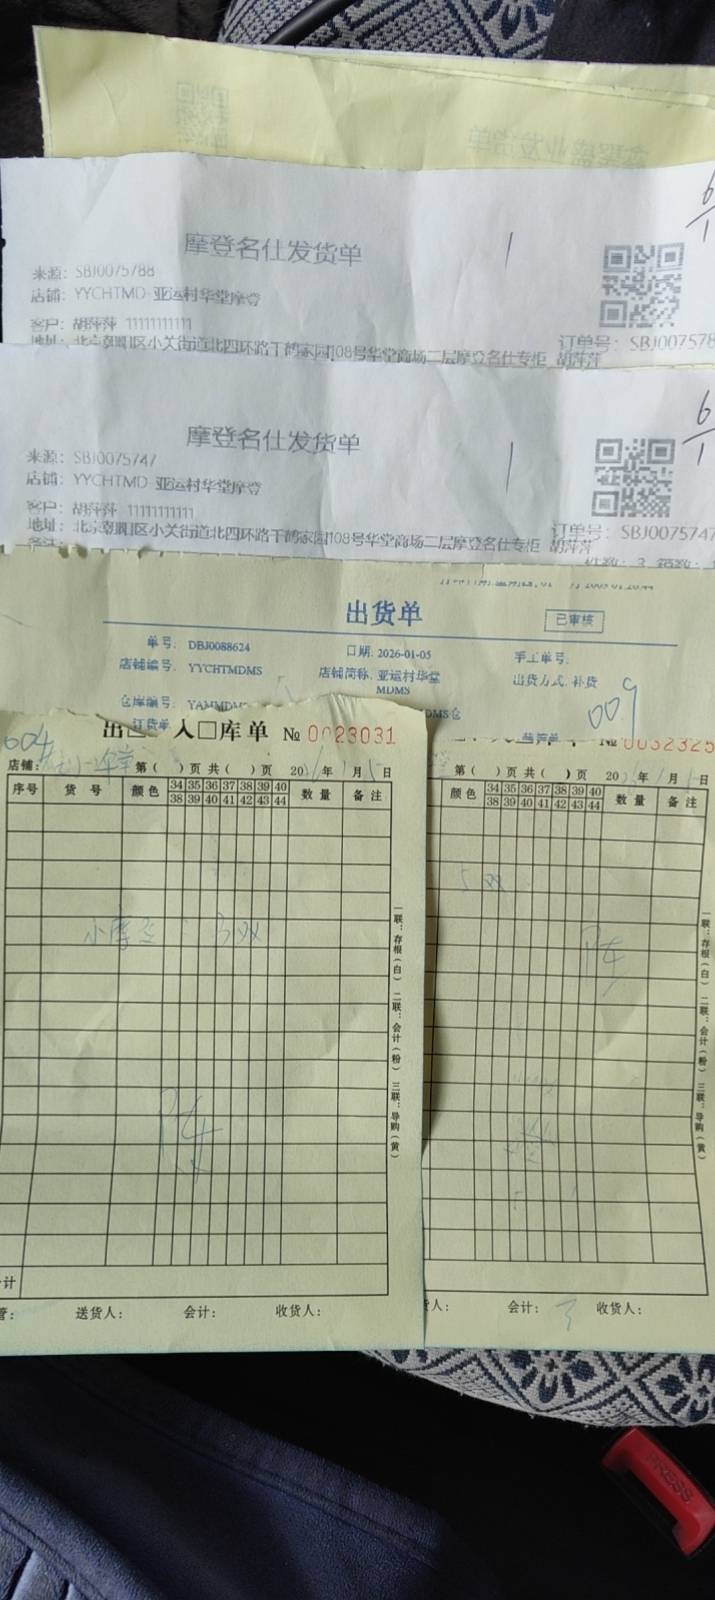 6/1
摩登名仕发货单
1
来源：SBJ0075788
店铺：YYCHTMD-亚运村华堂摩登
客户：胡萍萍 11111111111
订单号：SBJ007578
地址：北京朝阳区小关街道北四环路千鹤家园108号华堂商场二层摩登名仕专柜 胡萍萍
6/1
摩登名仕发货单
1
来源：SBJ0075747
店铺：YYCHTMD-亚运村华堂摩登
客户：胡萍萍 11111111111
订单号：SBJ0075747
地址：北京朝阳区小关街道北四环路千鹤家园108号华堂商场二层摩登名仕专柜 胡萍萍
件数：3 箱数：
出货单
已审核
单号：DBJ0088624
日期：2026-01-05
手工单号：
店铺编号：YYCHTMDMS
店铺简称：亚运村华堂MDMS
出货方式：补货
仓库编号：
DMS仓
009
订货单
出□ 入□库单 № 0023031
№ 0032325
604
店铺：
第（ ）页 共（ ）页 20 年 1月5日
第（ ）页 共（ ）页 20 年 1月 日
序号 货号 颜色 34 35 36 37 38 39 40 数量 备注
38 39 40 41 42 43 44
颜色 34 35 36 37 38 39 40 数量 备注
38 39 40 41 42 43 44
5双
3双
陈
陈
一联：存根（白） 二联：会计（粉） 三联：导购（黄）
一联：存根（白） 二联：会计（粉） 三联：导购（黄）
计
送货人： 会计： 收货人：
人： 会计： 收货人：
PRESS